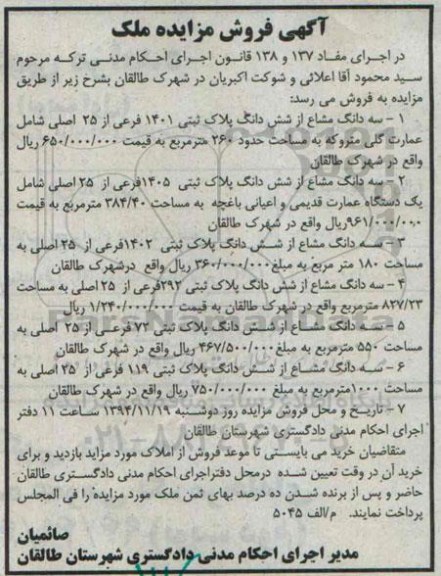 آگهی فروش مزایده ملک
در اجرای مفاد ۱۳۷ و ۱۳۸ قانون اجرای احکام مدنی ترکه مرحوم
سید محمود آقا اعلائی و شوکت اکبریان در شهرک طالقان بشرح زیر از طریق
مزایده به فروش می رسد:
۱ - سه دانگ مشاع از شش دانگ پلاک ثبتی ۱۴۰۱ فرعی از ۲۵ اصلی شامل
عمارت کلی متروکه به مساحت حدود ۲۶۰ مترمربع به قیمت ۶۵۰/۰۰۰/۰۰۰ ریال
واقع در شهرک طالقان
۲ - سه دانگ مشاع از شش دانگ پلاک ثبتی ۱۴۰۵فرعی از ۲۵ اصلی شامل
یک دستگاه عمارت قدیمی و اعیانی باغچه به مساحت ۳۸۴/۴۰ مترمربع به قیمت
۹۶۱/۰۰۰/۰۰۰ریال واقع در شهرک طالقان
۳ - سه دانگ مشاع از شش دانگ پلاک ثبتی ۱۴۰۲فرعی از ۲۵ اصلی به
مساحت ۱۸۰ متر مربع به مبلغ۳۶۰/۰۰۰/۰۰۰ ریال واقع درشهرک طالقان
۴ - سه دانگ مشاع از شش دانگ پلاک ثبتی ۲۹۲فرعی از ۲۵ اصلی به مساحت
۸۲۷/۲۳ مترمربع واقع در شهرک طالقان به قیمت ۱/۲۴۰/۰۰۰/۰۰۰ ریال
۵ - سه دانگ مشاع از شش دانگ پلاک ثبتی ۷۲ فرعی از ۲۵ اصلی به
مساحت ۵۵۰ مترمربع به مبلغ ۴۶۷/۵۰۰/۰۰۰ ریال واقع در شهرک طالقان
۶ - سه دانگ مشاع از شش دانگ پلاک ثبتی ۱۱۹ فرعی از ۲۵ اصلی به
مساحت ۱۰۰۰مترمربع به مبلغ ۷۵۰/۰۰۰/۰۰۰ ریال واقع در شهرک طالقان
۷ - تاریخ و محل فروش مزایده روز دوشنبه ۱۳۹۴/۱۱/۱۹ ساعت ۱۱ دفتر
اجرای احکام مدنی دادگستری شهرستان طالقان
متقاضیان خرید می بایستی تا موعد فروش از املاک مورد مزاید بازدید و برای
خرید آن در وقت تعیین شده درمحل دفتراجرای احکام مدنی دادگستری طالقان
حاضر و پس از برنده شدن ده درصد بهای ثمن ملک مورد مزایده را فی المجلس
پرداخت نمایند. م/الف ۵۰۴۵
صائمیان
مدیر اجرای احکام مدنی دادگستری شهرستان طالقان